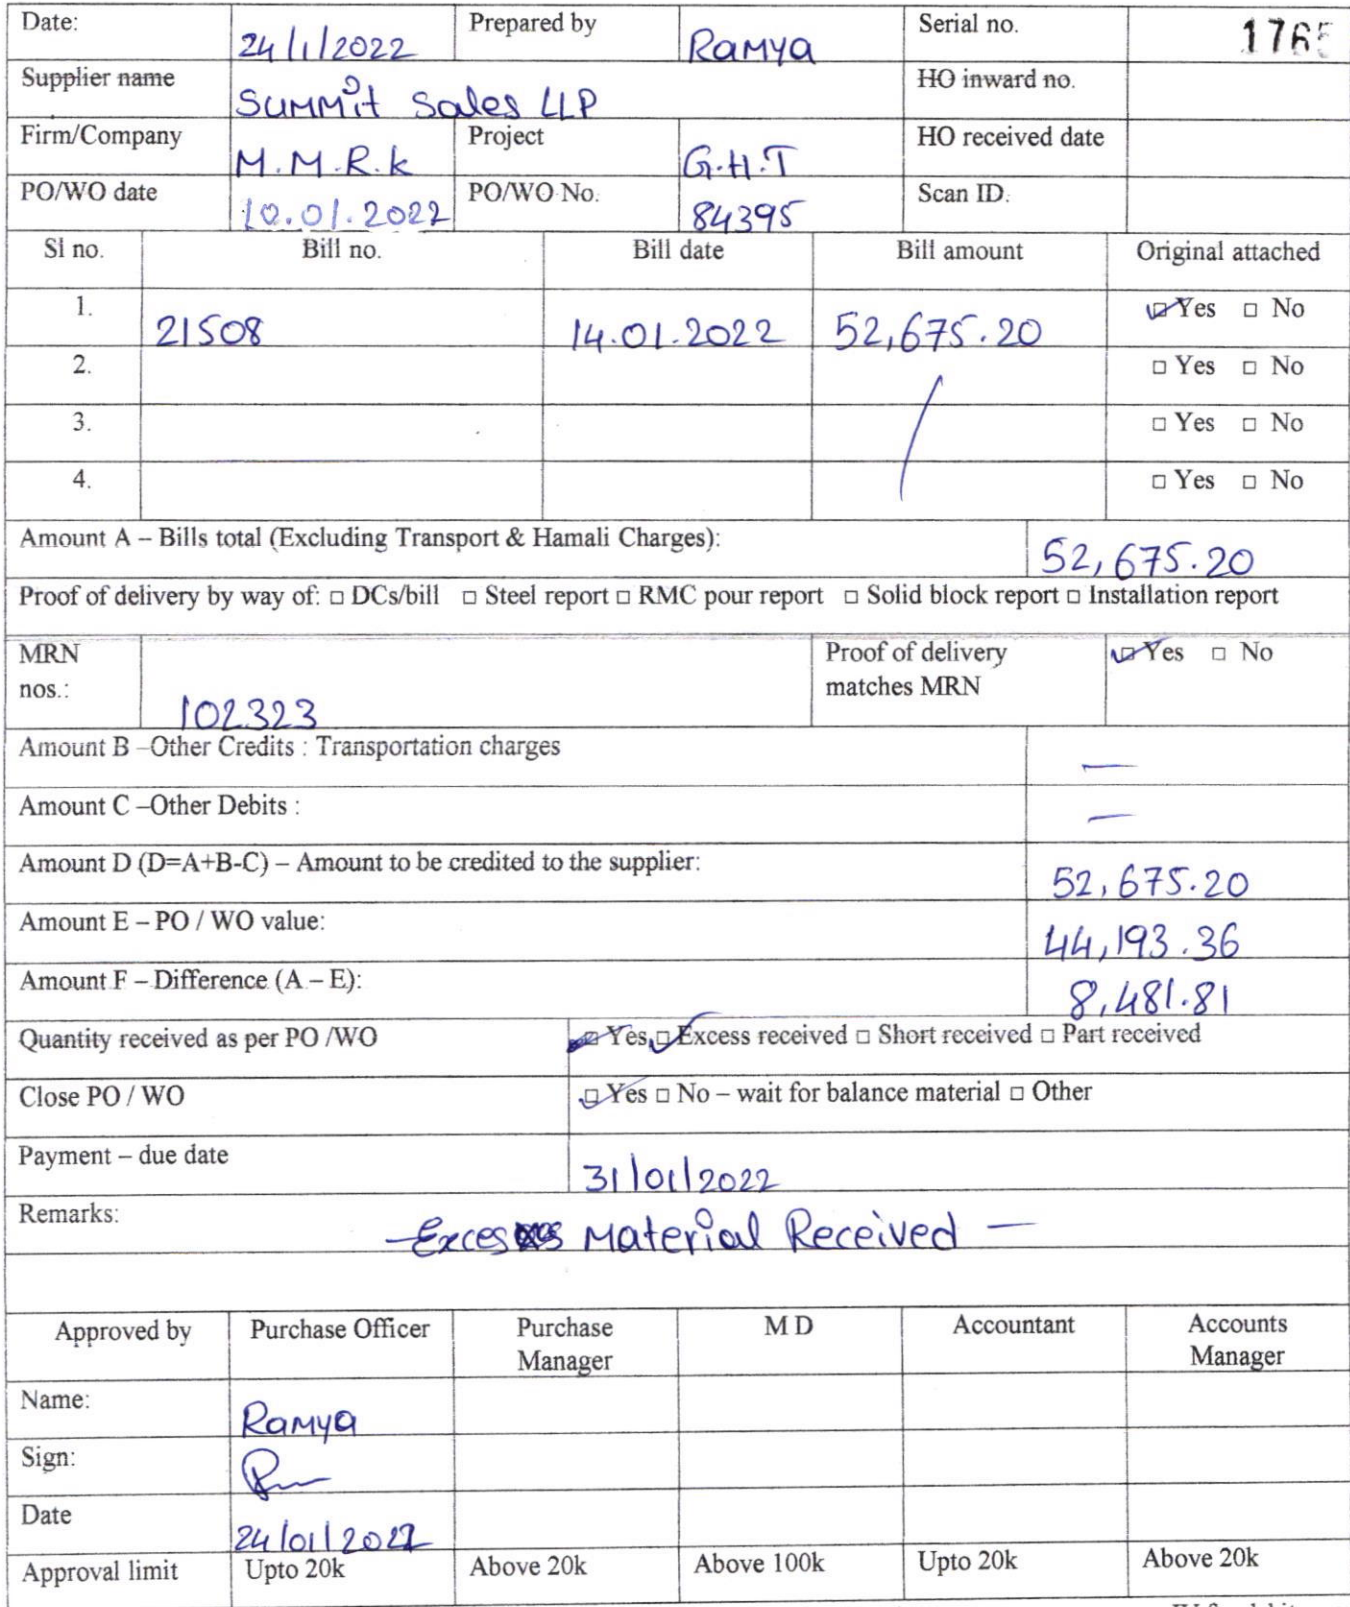 Date: 24/1/2022 Prepared by Ramya Serial no. 1765
Supplier name Summit Sales LLP HO inward no.
Firm/Company M.M.R.K Project G.H.T HO received date
PO/WO date 10.01.2022 PO/WO No. 84395 Scan ID.
Sl no. Bill no. Bill date Bill amount Original attached
1. 21508 14.01.2022 52,675.20 ☑ Yes □ No
2. □ Yes □ No
3. □ Yes □ No
4. □ Yes □ No
Amount A – Bills total (Excluding Transport & Hamali Charges): 52,675.20
Proof of delivery by way of: □ DCs/bill □ Steel report □ RMC pour report □ Solid block report □ Installation report
MRN nos.: 102323 Proof of delivery matches MRN ☑ Yes □ No
Amount B –Other Credits : Transportation charges —
Amount C –Other Debits : —
Amount D (D=A+B-C) – Amount to be credited to the supplier: 52,675.20
Amount E – PO / WO value: 44,193.36
Amount F – Difference (A – E): 8,481.81
Quantity received as per PO /WO Yes ☑ Excess received □ Short received □ Part received
Close PO / WO ☑ Yes □ No – wait for balance material □ Other
Payment – due date 31/01/2022
Remarks: – Excess Material Received –
Approved by Purchase Officer Purchase Manager M D Accountant Accounts Manager
Name: Ramya
Sign:
Date 24/01/2022
Approval limit Upto 20k Above 20k Above 100k Upto 20k Above 20k